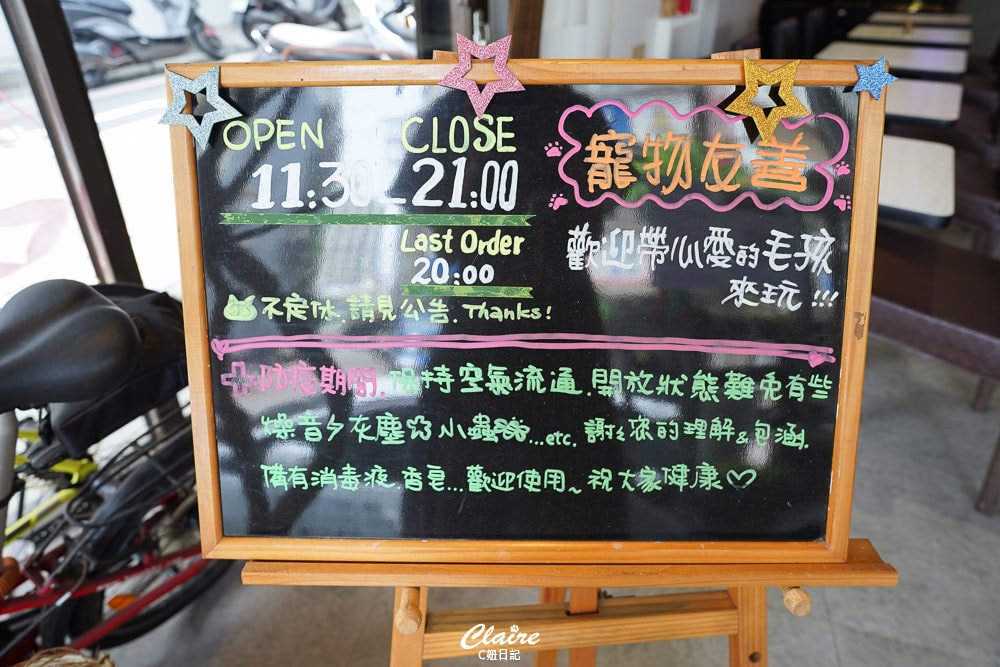 OPEN CLOSE
11:30 - 21:00
Last Order
20:00
不定休.請見公告.Thanks!
寵物友善
歡迎帶心愛的毛孩
來玩!!!
防疫期間.保持空氣流通.開放狀態難免有些
燥音、灰塵、小蟲...etc.謝謝您的理解&包涵.
備有消毒液.香皂...歡迎使用~祝大家健康♡
Claire
C妞日記